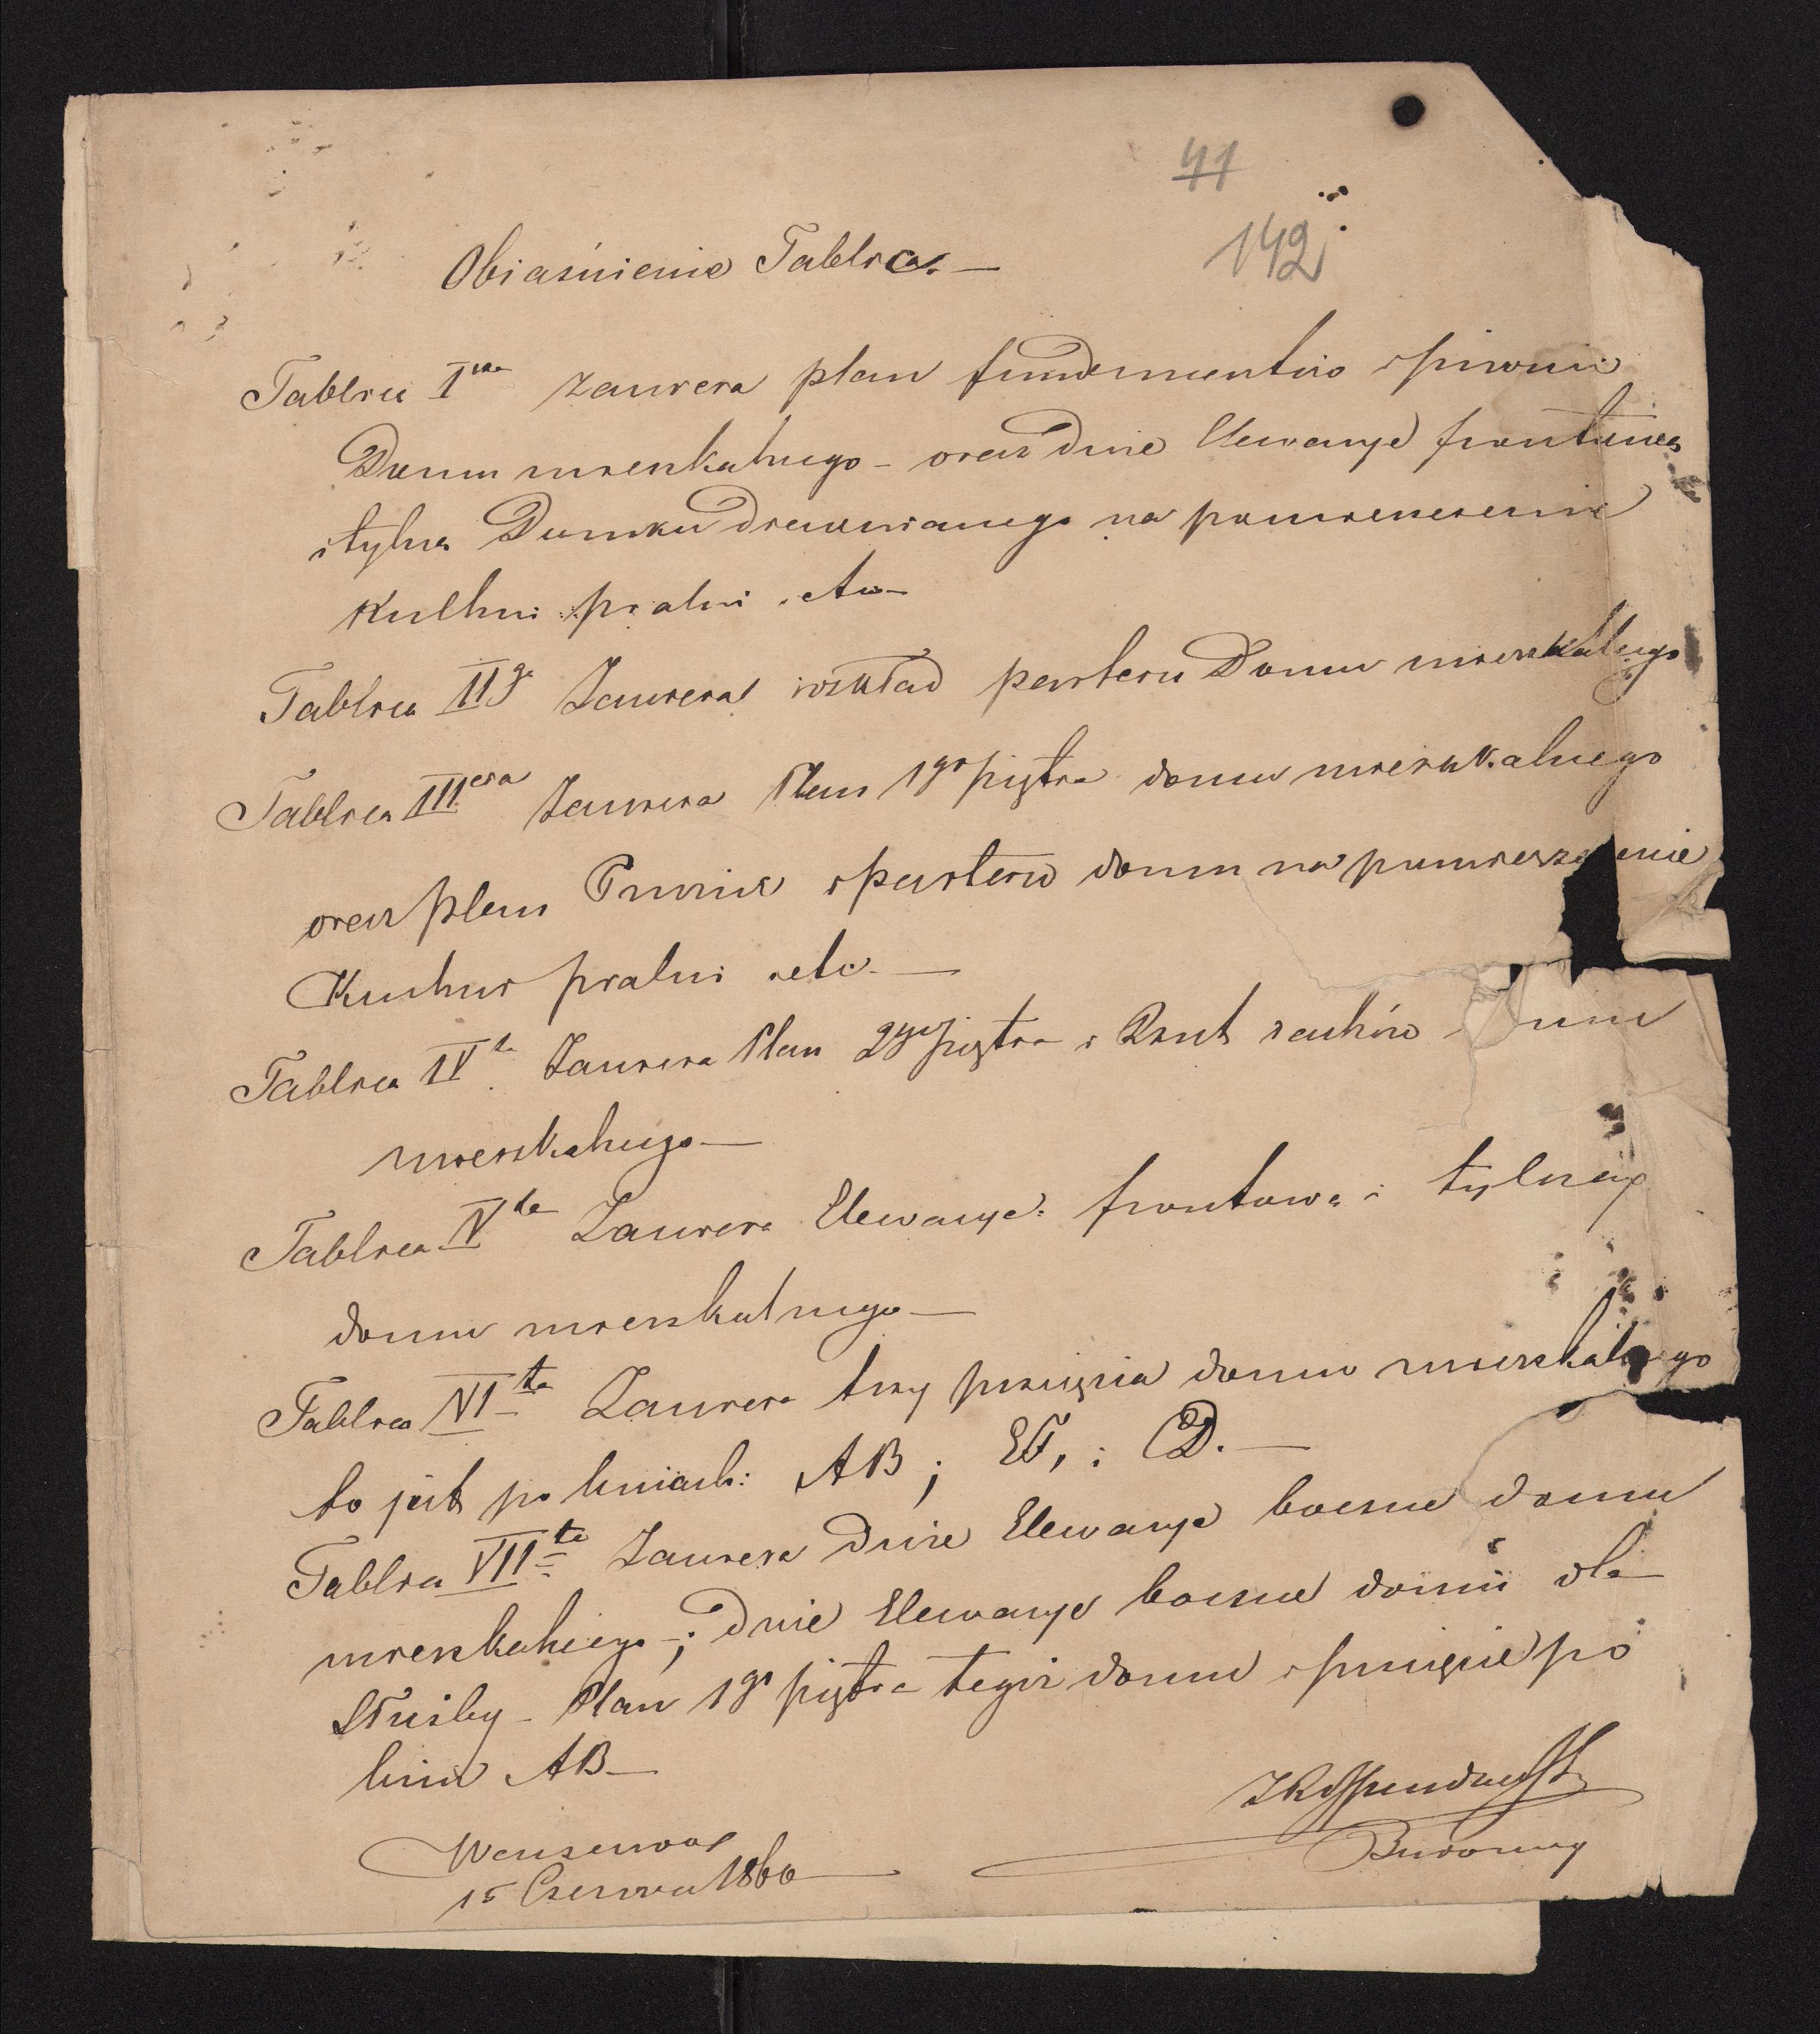 41
142
Obiaśnienie Tablic.—
Tablica Iwa zawiera plan fundamentów i piwnic
Domu mieszkalnego – oraz dwie Elewacye frontowa
i tylna Domku drewnianego na pomieszczenie
Kuchni pralni etc—
Tablica IIga Zawiera rozkład parteru Domu mieszkalnego
Tablica IIIcia Zawiera Plan 1go piętra domu mieszkalnego
oraz plan Piwnic i parteru domu na pomieszczenie
Kuchni pralni etc.—
Tablica IVta Zawiera Plan 2go piętra i Rzut dachów
mieszkalnego—
Tablica Vta Zawiera Elewacye: frontową i tylną
domu mieszkalnego—
Tablica VIta Zawiera trzy przecięcia domu mieszkalnego
to jest po liniach: AB; EF, i CD.—
Tablica VIIta Zawiera dwie Elewacye boczne domu
mieszkalnego –; dwie Elewacye boczne domu dla
Służby – Plan 1go piętra tegoż domu i przecięcie po
linii AB—
Warszawa
15 Czerwca 1866
Budowniczy